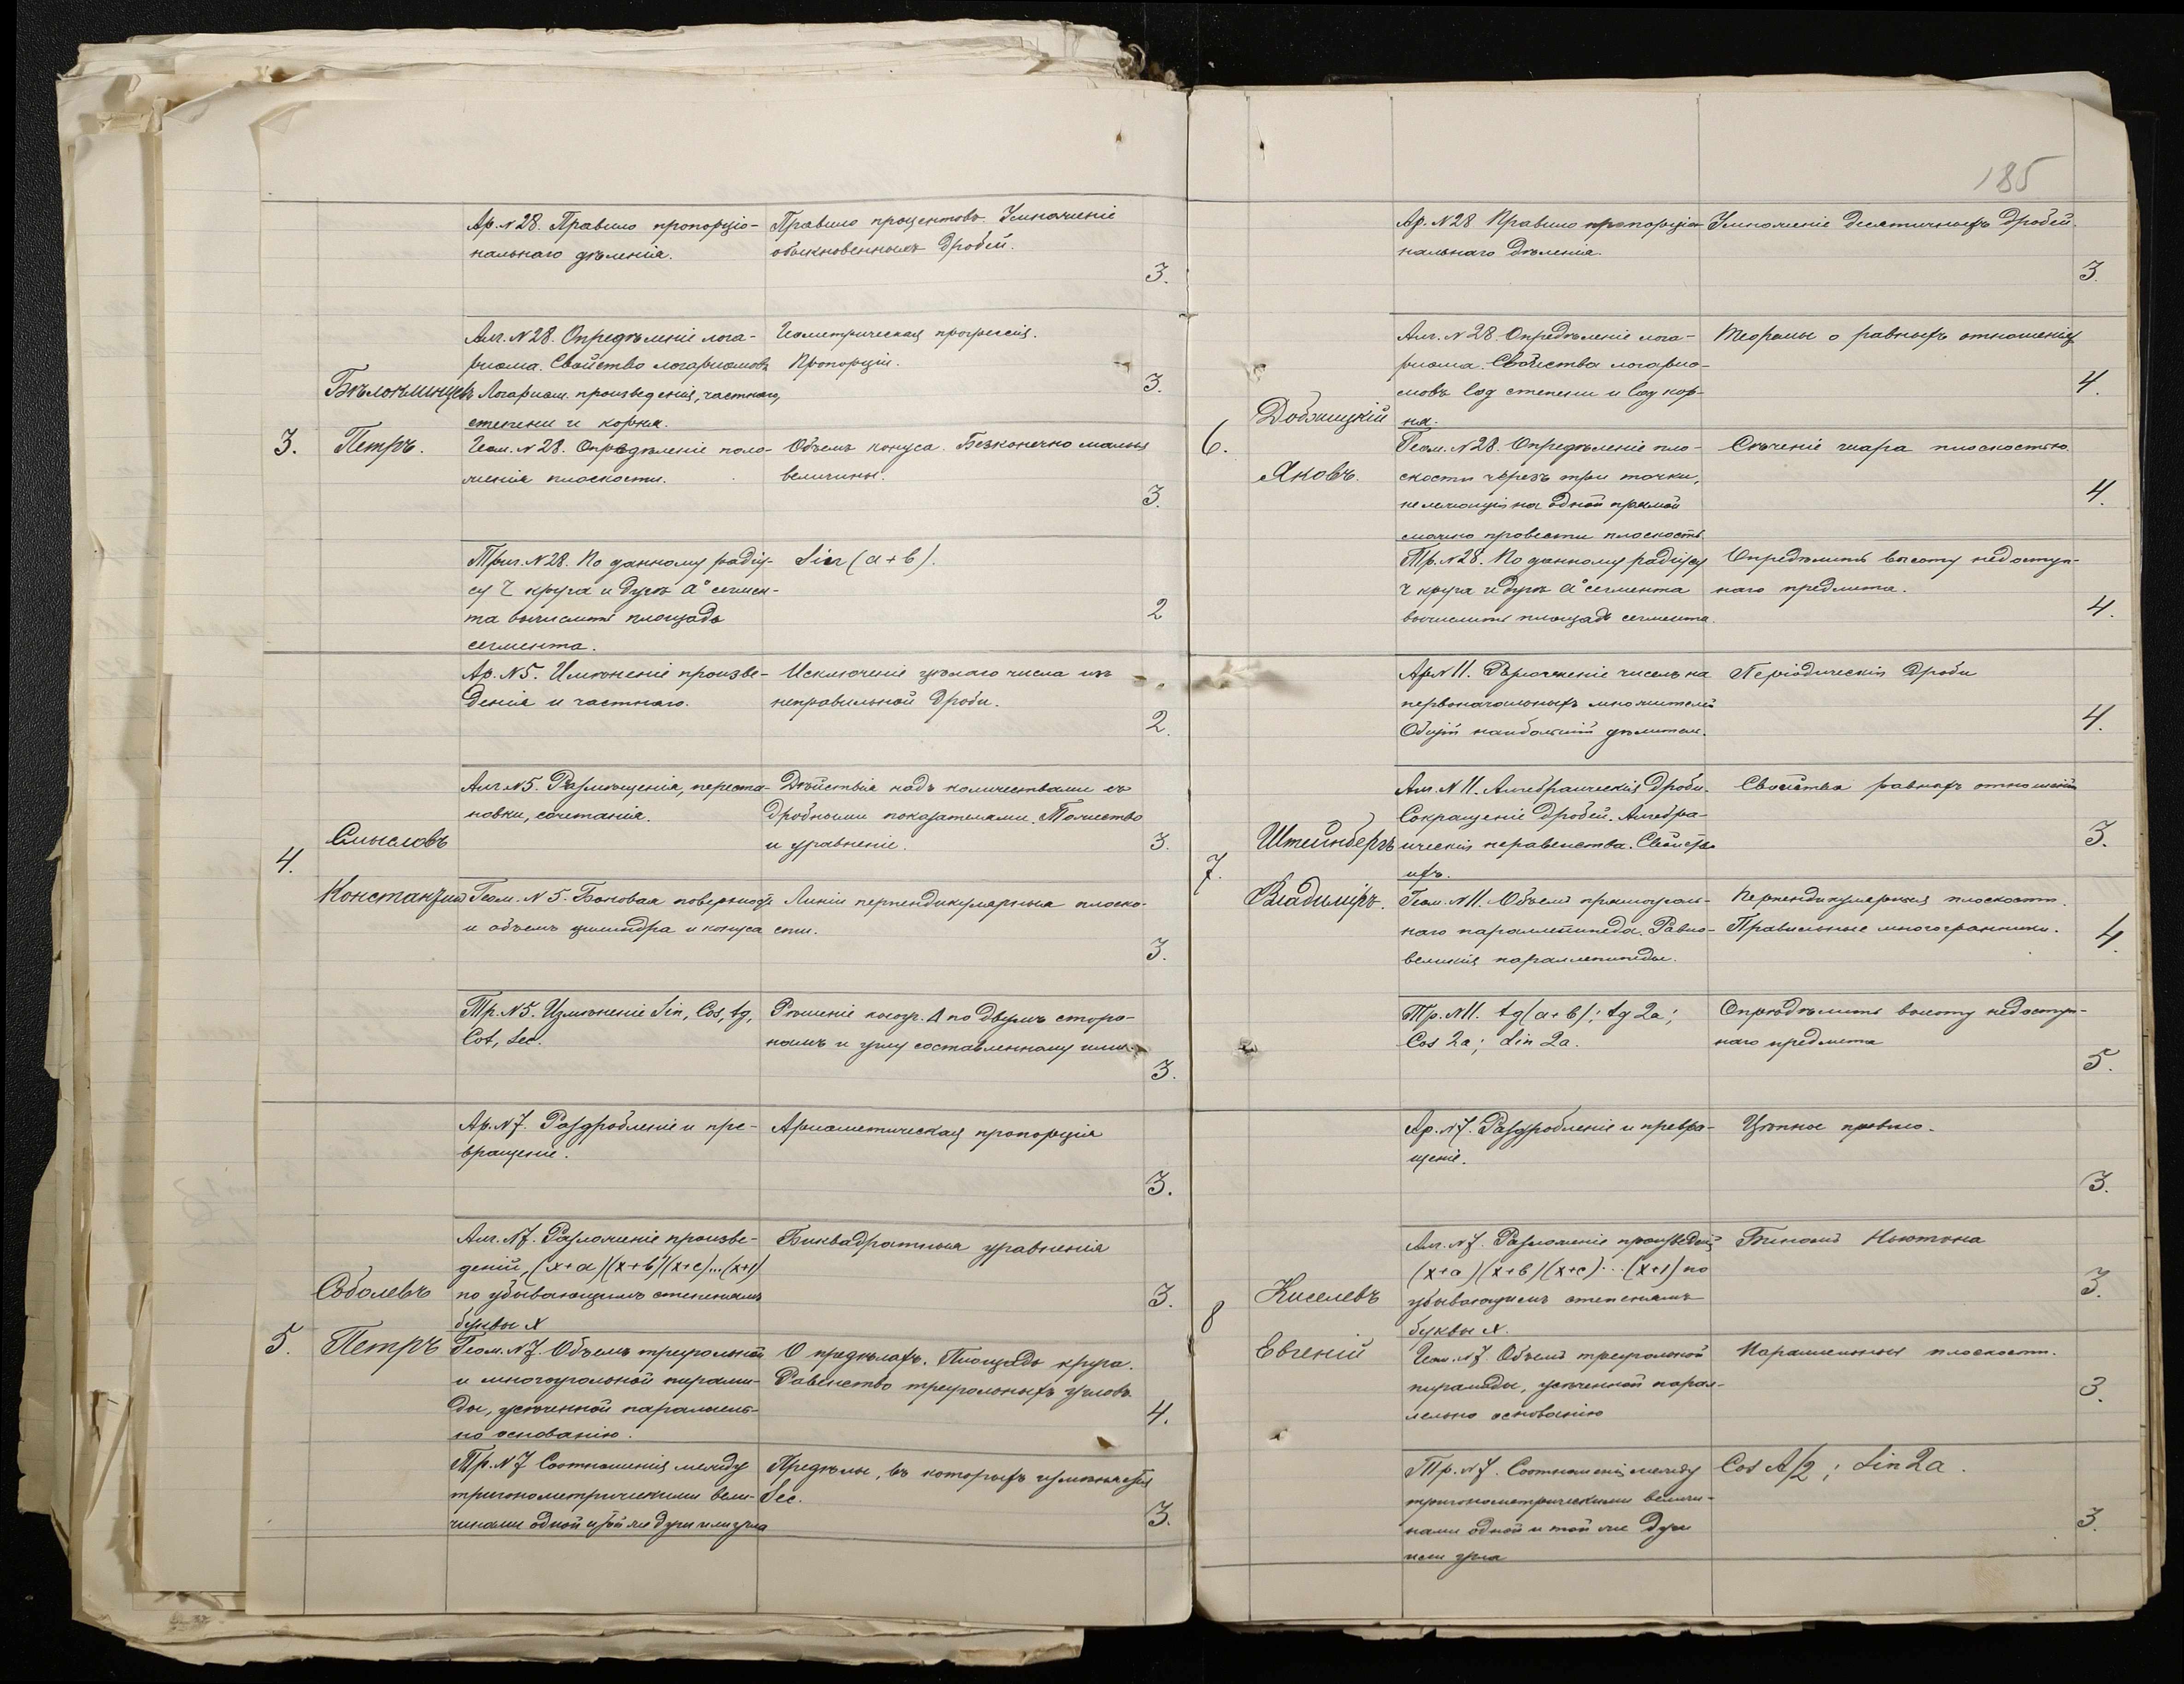 Ар. №28. Правило пропорціо-
нальнаго дѣленія.
Правило процентовъ. Умноженіе
обыкновенныхъ дробей.
3.
Алг. №28. Опредѣленіе лога-
риѳма. Свойство логариѳмовъ
Логариѳм. произведенія, частнаго,
степени и корня.
Геометрическая прогрессія.
Пропорціи.
3.
3.
Бѣлокминцевъ
Петръ.
Геом. №28. Опредѣленіе поло-
женія плоскости.
Объемъ конуса. Безконечно малыя
величины.
3.
Триг. №28. По данному радіу-
су r круга и дугѣ a° сегмен-
та вычислить площадь
сегмента.
Sin (a+b).
2
Ар. №5. Измѣненіе произве-
денія и частнаго.
Исключеніе цѣлаго числа изъ
неправильной дроби.
2.
Алг. №5. Размѣщенія, переста-
новки, сочетанія.
Дѣйствія надъ количествами съ
дробными показателями. Тожество
и уравненіе.
3.
4.
Смысловъ
Константинъ
Геом. №5. Боковая поверхность
и объемъ цилиндра и конуса
Линіи перпендикулярныя плоско-
сти.
3.
Тр. №5. Измѣненіе Sin, Cos, tg,
Cot, Sec.
Рѣшеніе косоуг. Δ по двумъ сторо-
намъ и углу составленному ими.
3.
Ар. №7. Раздробленіе и пре-
вращеніе.
Ариѳметическая пропорція
3.
Алг. №7. Разложеніе произве-
деній, (x+a)(x+b)(x+c)...(x+1)
по убывающимъ степенямъ
буквы x
Биквадратныя уравненія
3.
5.
Соболевъ
Петръ
Геом. №7. Объемъ треугольной
и многоугольной пирами-
ды, усѣченной параллель-
но основанію.
О предѣлахъ. Площадь круга.
Равенство треугольныхъ угловъ.
4.
Тр. №7 Соотношенія между
тригонометрическими вели-
чинами одной и той же дуги или угла
Предѣлы, въ которыхъ измѣняется
Sec.
3.
185
Ар. №28 Правило пропорціо-
нальнаго дѣленія.
Умноженіе десятичныхъ дробей.
3.
Алг. №28. Опредѣленіе лога-
риѳма. Свойства логариѳ-
мовъ Log степени и Log кор-
ня.
Теоремы о равныхъ отношеніяхъ
4.
6.
Яковъ.
Геом. №28. Опредѣленіе пло-
скости черезъ три точки,
не лежащія на одной прямой
можно провести плоскость.
Сѣченіе шара плоскостью
4.
Тр. №28. По данному радіусу
r круга и дугѣ a° сегмента
вычислить площадь сегмента.
Опредѣлить высоту недоступ-
наго предмета.
4.
Ар. №11. Разложеніе чиселъ на
первоначальныхъ множителей
Общій наибольшій дѣлитель.
Періодическія дроби
4.
Алг. №11. Алгебраическія дроби.
Сокращеніе дробей. Алгебра-
ическія неравенства. Свойства
ихъ.
Свойства равныхъ отношеній
3.
7.
Штейнбергъ
Владиміръ.
Геом. №11. Объемъ прямоуголь-
наго параллепипеда. Равно-
великія параллепипеды.
Перпендикулярныя плоскости.
Правильные многогранники.
4.
Тр. №11. tg(a+b); tg 2a;
Cos 2a; Sin 2a.
Опредѣлить высоту недоступ-
наго предмета
5.
Ар. №7. Раздробленіе и превра-
щеніе.
Цѣпное правило.
3.
Алг. №7. Разложеніе произведеній
(x+a)(x+b)(x+c)...(x+1) по
убывающимъ степенямъ
буквы x.
Биномъ Ньютона
3.
8
Киселевъ
Евгеній
Геом. №7. Объемъ треугольной
пирамиды, усѣченной парал-
лельно основанію
Параллельныя плоскости.
3.
Тр. №7. Соотношенія между
тригонометрическими величи-
нами одной и той же дуги
или угла
Cos A/2; Sin 2a.
3.